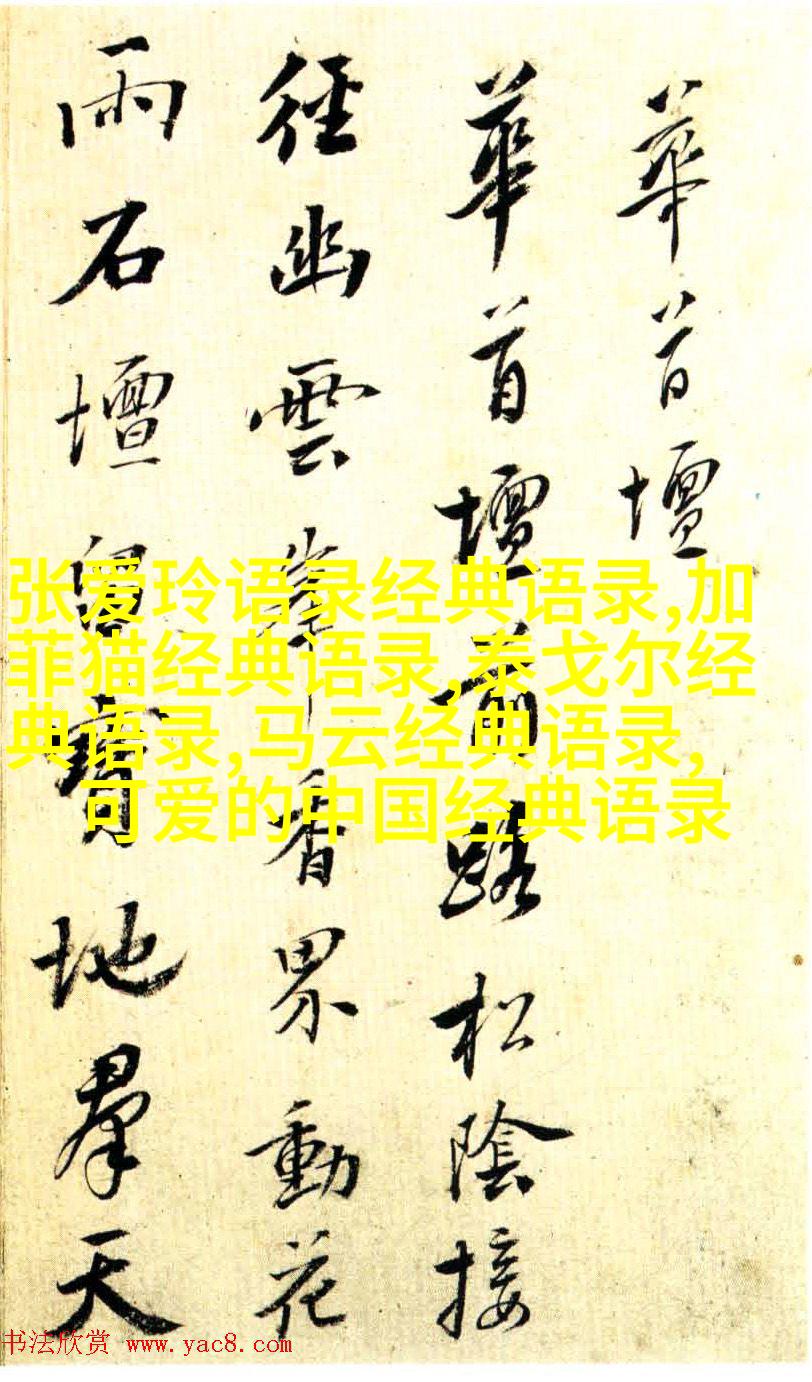 華首壇
華首壇前路松陰接
徑幽雲峯香界動花
雨石壇留寶地羣天
张爱玲语录经典语录,加
菲猫经典语录,泰戈尔经
典语录,马云经典语录,
可爱的中国经典语录
书法欣赏 www.yac8.com